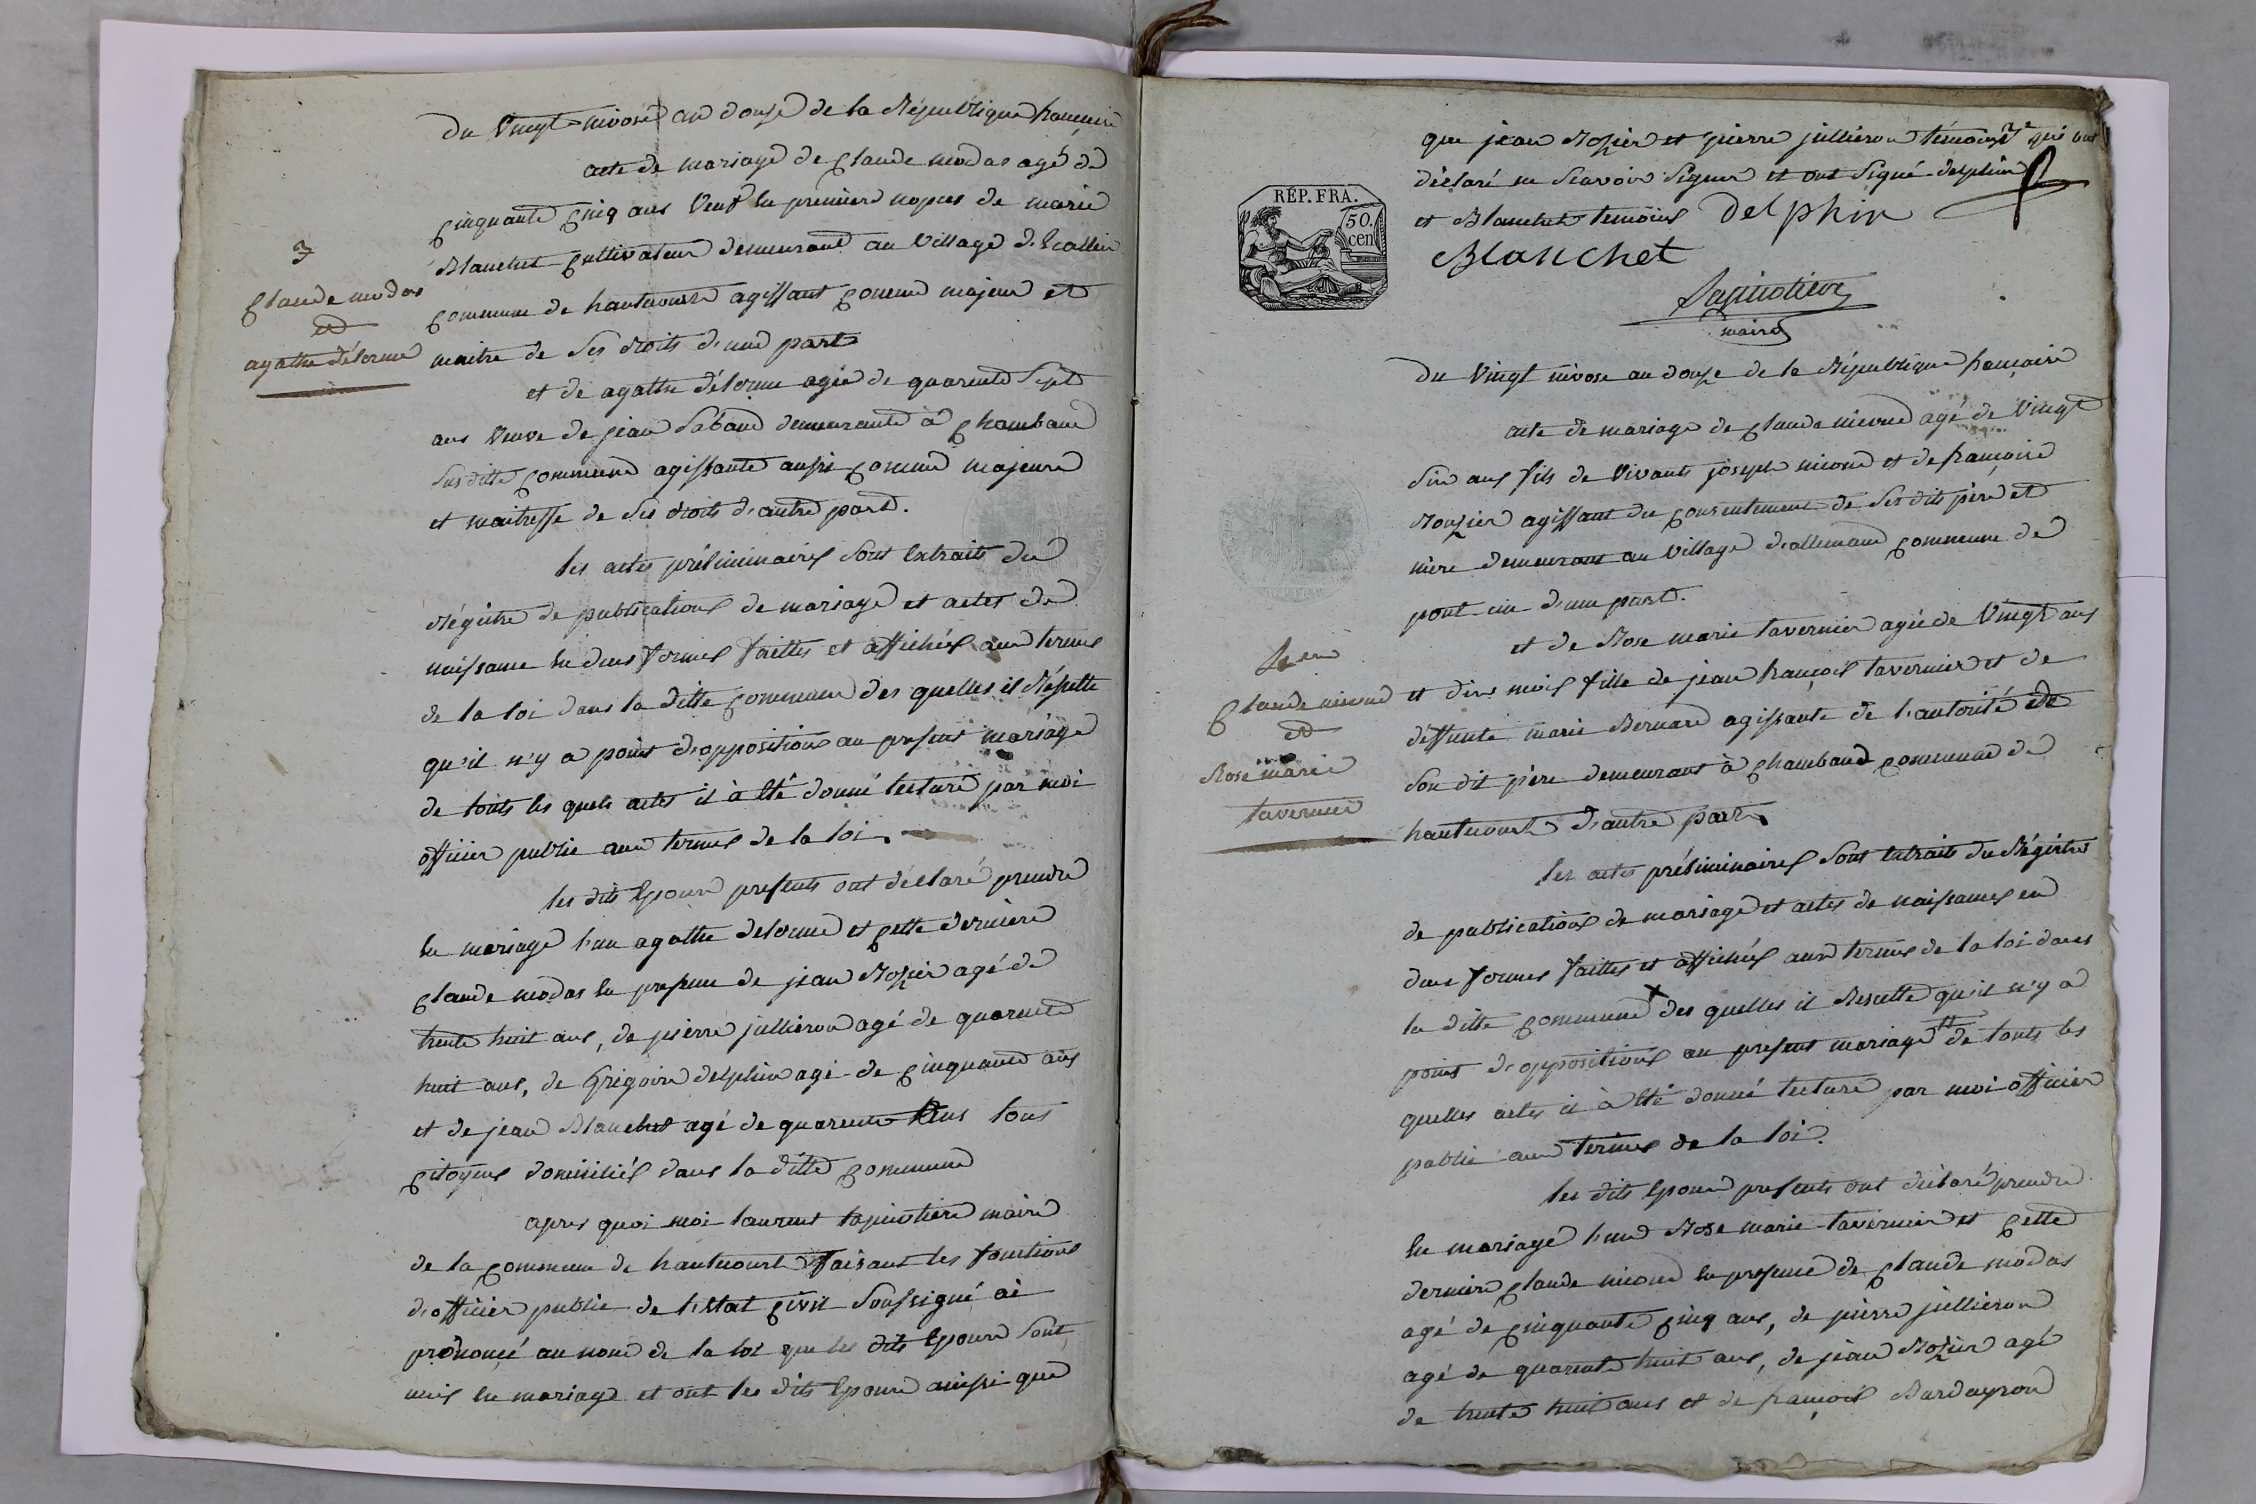 du Vingt nivose an douse de la République francaise
acte de mariage de Claude modas agé de
Cinquante Cinq ans Veuf en premiere nopces de marie
Blanchet Cultivateur demeurant au Village d'
Commune de hautecourt agissant Comme majeur et
maitre de ses droits d'une part
3
Claude modas
et
agathe délorme
et de agathe délorme agée de quarente Sept
ans Veuve de jean demeurante à Chambaud
Susditte Commune agissante aussi Comme majeure
et maitresse de ses droits d'autre part.
les actes préliminaires Sont Extraits du
Régitre de publications de mariage et actes de
naissance En dues formes faittes et affichés aux termes
de la loi dans la ditte Commune des quelles il Résulte
qu'il n'y a point d'oppositions au present mariage
de touts les quels actes il à Eté donné lecture par moi
officier public aux termes de la loi.
les dits Epoux presents ont déclaré prendre
En mariage l'un agathe delorme et Cette derniere
Claude modas En presence de jean Rozier agé de
trente huit ans, de pierre jullieron agé de quarente
huit ans, de Grégoire delphin agé de Cinquante ans
et de jean Blanchet agé de quarente ans tous
Citoyens domiciliés dans la ditte Commune
apres quoi moi laurent lapinotiere maire
de la Commune de hautecourt faisant les fonctions
d'officier public de l'etat Civil Soussigné ai
prononcé au nom de la loi que les dits Epoux Sont
unis En mariage et ont les dits Epoux ainsi que
que jean Rozier et pierre jullieron témoins qui ont
déclaré ne Scavoir Signer et ont Signé delphin
et Blanchet temoins delphin
Blanchet
Lapinotiere
maire
RÉP. FRA.
50.
cen
du Vingt nivose an douze de la République francaise
acte de mariage de Claude nicoud agé de Vingt
Six ans fils de Vivants joseph nicoud et de francoise
Rozier agissant du Consentement de Ses dits pére et
mere demeurant au Village d'allemand Commune de
pont d'ain d'une part.
Claude nicoud
et
Rose marie
tavernier
et de Rose marie tavernier agée de Vingt ans
et dix mois fille de jean francois tavernier et de
déffunte marie Bernard agissante de l'autorité de
Son dit pére demeurant à Chambaud Commune de
hautecourt d'autre part.
les actes préliminaires Sont Extraits du Régistre
de publications de mariage et actes de naissances en
dues formes faittes et affichés aux termes de la loi dans
la ditte Commune des quelles il Resulte qu'il n'y a
point d'oppositions au present mariage de touts les
quelles actes il à Eté donné lecture par moi officier
public aux termes de la loi.
les dits Epoux presents ont déclaré prendre
En mariage l'un Rose marie tavernier et Cette
derniere Claude nicoud En presence de Claude modas
agé de Cinquante Cinq ans, de pierre jullieron
agé de quarente huit ans, de jean Rozier agé
de trente huit ans et de francois